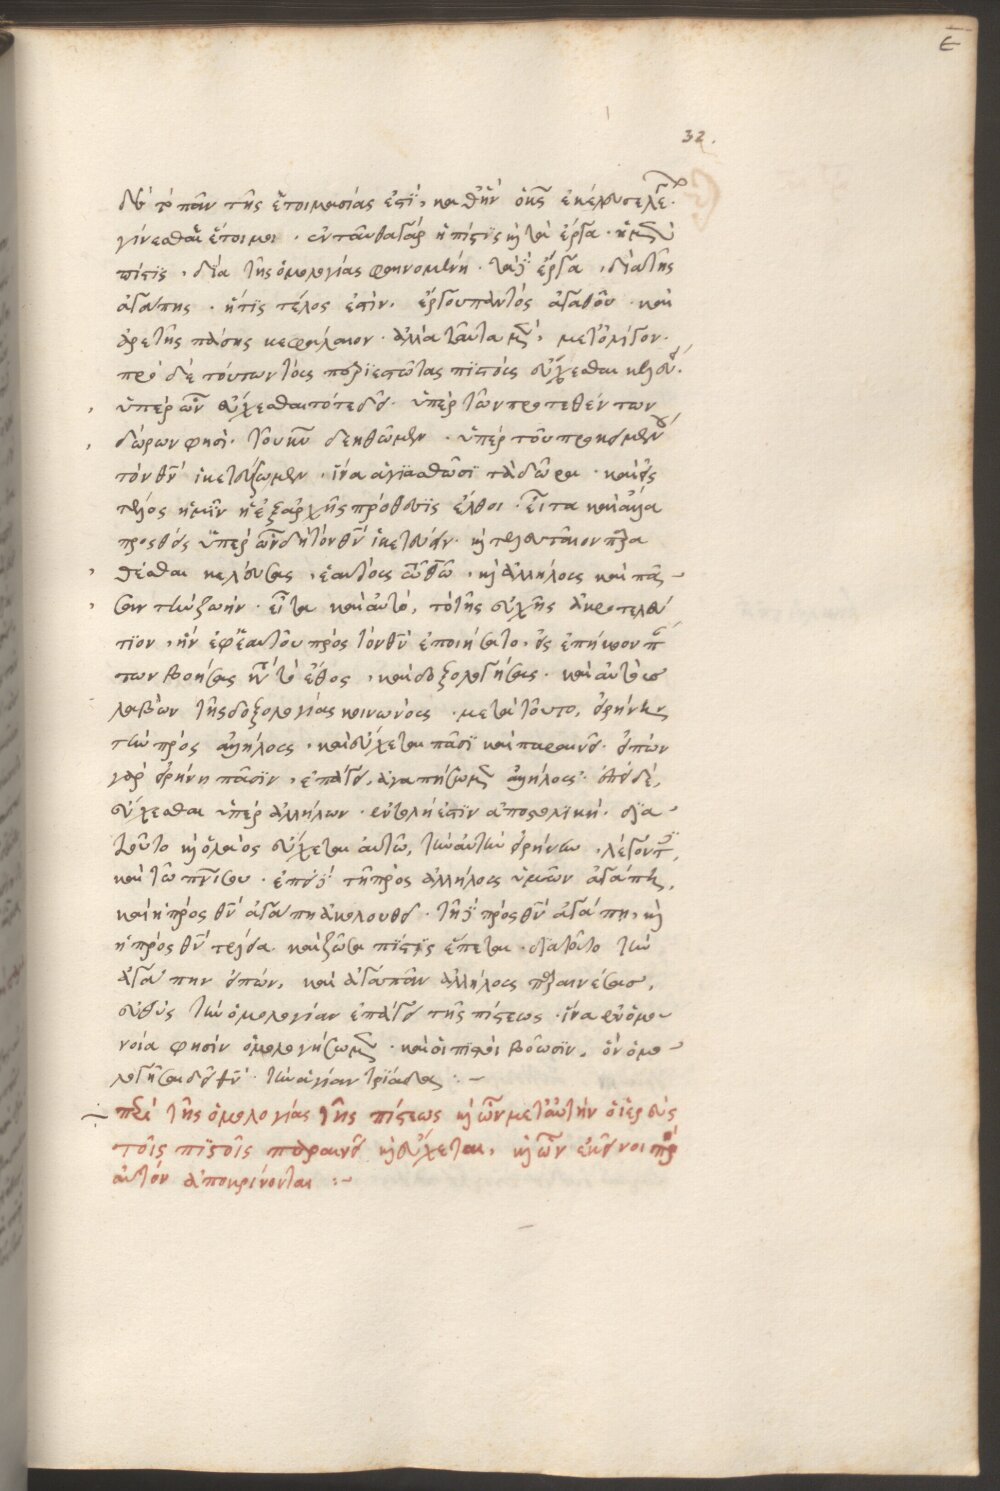 ε
32.
γίνεσθαι ἕτοιμοι. ἐνταῦθα γὰρ ἡ πίστις κ τὰ ἔργα. ἡ μὲν
πίστις, διὰ τῆς ὁμολογίας φαινομένη. τὰ δ ἔργα, διὰ τῆς
ἀγάπης. ἥτις τέλος ἐστὶν, ἔργου παντὸς ἀγαθοῦ. καὶ
ἀρετῆς πάσης κεφάλαιον. ἀλλὰ ταῦτα μὲν, μετ ὀλίγον.
πρὸ δὲ τούτων τοὺς περιεστῶτας πιστοὺς εὔχεσθαι κελεύ.
ὑπὲρ ὧν εὔχεσθαι τότε δεῖ. ὑπὲρ τῶν προτεθέντων
δώρων φησὶ. τοῦ κυ δεηθῶμεν. ὑπὲρ τοῦ προκειμένου
τὸν θν ἱκετεύσωμεν, ἵνα ἁγιασθῶσι τὰ δῶρα. καὶ εἰς
τέλος ἡμῖν ἡ ἐξαρχῆς πρόθεσις ἔλθοι. εἶτα καὶ ἄλλα
προσθεὶς ὑπὲρ ὧν δεῖ τὸν θν ἱκετεύειν. κ τελευταῖον παρα
θέσθαι κελεύσας, ἑαυτοὺς τῶ θῶ, κ ἀλλήλους καὶ πᾶ-
σαν τὴν ζωήν. εἶτα καὶ αὐτὸ, τὸ τῆς εὐχῆς ἀκροτελεύ
τιον, ἣν ἐφ ἑαυτοῦ πρὸς τὸν θν ἐποιήσατο, εἰς ἐπήκοον πν
των βοήσας κτ τὸ ἔθος, καὶ δοξολογήσας. καὶ αὐτοὺς
λαβὼν τῆς δοξολογίας κοινωνοὺς. μετὰ τοῦτο, εἰρήνην
τὴν πρὸς ἀλλήλους, καὶ εὔχεται πᾶσι καὶ παραινεῖ. εἰπὼν
γὰρ εἰρήνη πᾶσιν, ἐπάγει, ἀγαπήσωμεν ἀλλήλους. ἐπεὶ δὲ,
εὔχεσθαι ὑπὲρ ἀλλήλων. ἐντολή ἐστιν ἀποστολική. διὰ
τοῦτο κ ὁ λαὸς εὔχεται αὐτῶ, τὴν αὐτὴν εἰρήνην, λέγοντες,
καὶ τῶ πνι σου. ἐπεὶ δ τῆ πρὸς ἀλλήλους ὑμῶν ἀγάπη,
καὶ ἡ πρὸς θν ἀγάπη ἀκολουθεῖ. τῆ δ πρὸς θν ἀγάπη, κ
ἡ πρὸς θν τελεία καὶ ζῶσα πίστις ἕπεται. διὰ τοῦτο τὴν
ἀγάπην εἰπὼν, καὶ ἀγαπᾶν ἀλλήλους παραινέσας,
εὐθὺς τὴν ὁμολογίαν ἐπάγει τῆς πίστεως. ἵνα ἐν ὁμο-
νοία φησὶν ὁμολογήσωμεν. καὶ οἱ πιστοὶ βοῶσιν, ὃν ὁμο-
λογῆσαι δεῖ θν. τὴν ἁγίαν τριάδα. -
περὶ τῆς ὁμολογίας τῆς πίστεως κ ὧν μετ αὐτὴν ὁ ἱερεὺς
τοῖς πιστοῖς παραινεῖ κ εὔχεται, κ ὧν ἐκεῖνοι πρὸς
αὐτὸν ἀποκρίνονται :-